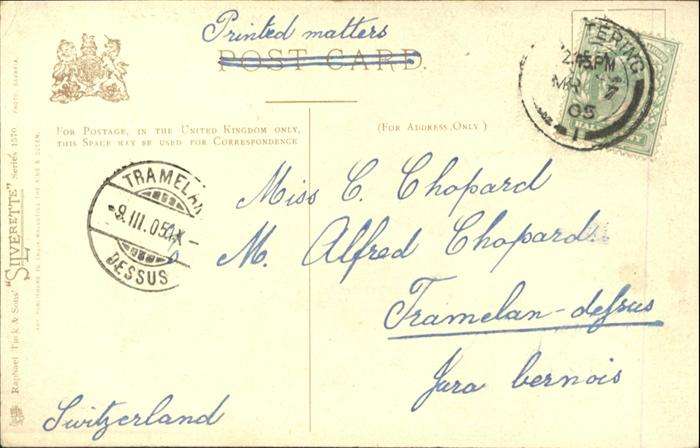 Printed matters
POST CARD.
FOR POSTAGE, IN THE UNITED KINGDOM ONLY,
THIS SPACE MAY BE USED FOR CORRESPONDENCE
(FOR ADDRESS ONLY)
TERING
2.15PM
MR 7
05
1
TRAMELAN
9.III.05.IX
DESSUS
Miss C. Chopard
M. Alfred Chopard
Tramelan-dessus
Jura bernois
Switzerland
Raphael Tuck & Sons' "SILVERETTE" Series 1570